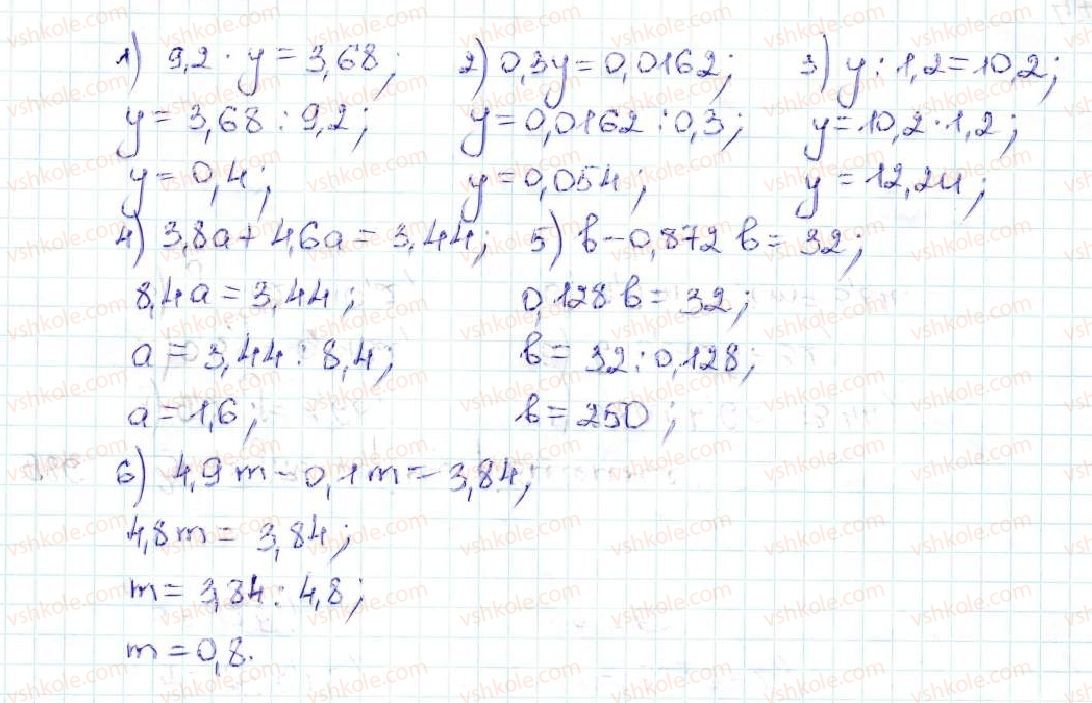 1) 9,2 · y = 3,68; 2) 0,3y = 0,0162; 3) y : 1,2 = 10,2;
y = 3,68 : 9,2; y = 0,0162 : 0,3; y = 10,2 · 1,2;
y = 0,4; y = 0,054; y = 12,24;
4) 3,8a + 4,6a = 3,44; 5) b - 0,872 b = 32;
8,4a = 3,44; 0,128 b = 32;
a = 3,44 : 8,4; b = 32 : 0,128;
a = 1,6; b = 250;
6) 4,9m - 0,1m = 3,84;
4,8m = 3,84;
m = 3,84 : 4,8;
m = 0,8.
vshkole.com